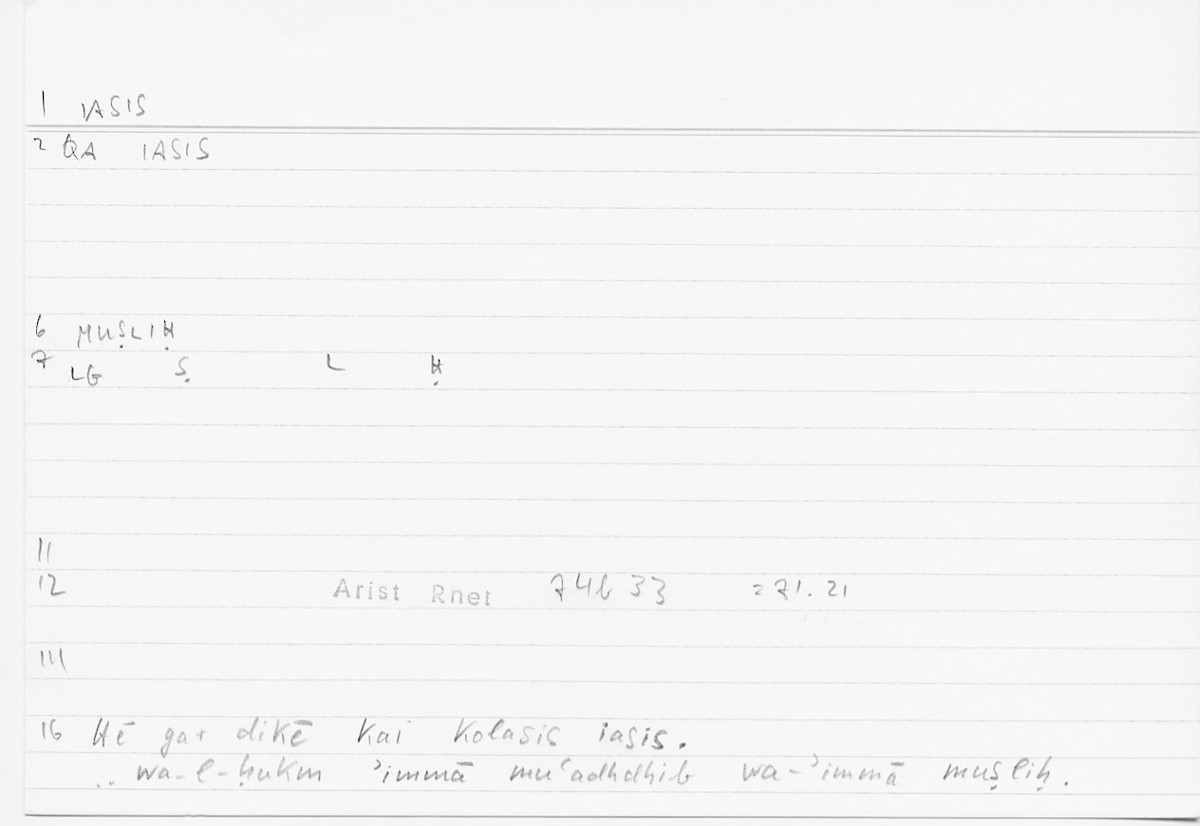 1 IASIS
2 QA IASIS
6 MUṢLIḤ
7 LG Ṣ L Ḥ
11
12 Arist Rhet 74b 33 = 71.21
14
16 Hē gar dikē kai kolasis iasis.
.. wa-l-ḥukm ʾimmā muʿadhdhib wa-ʾimmā muṣliḥ.